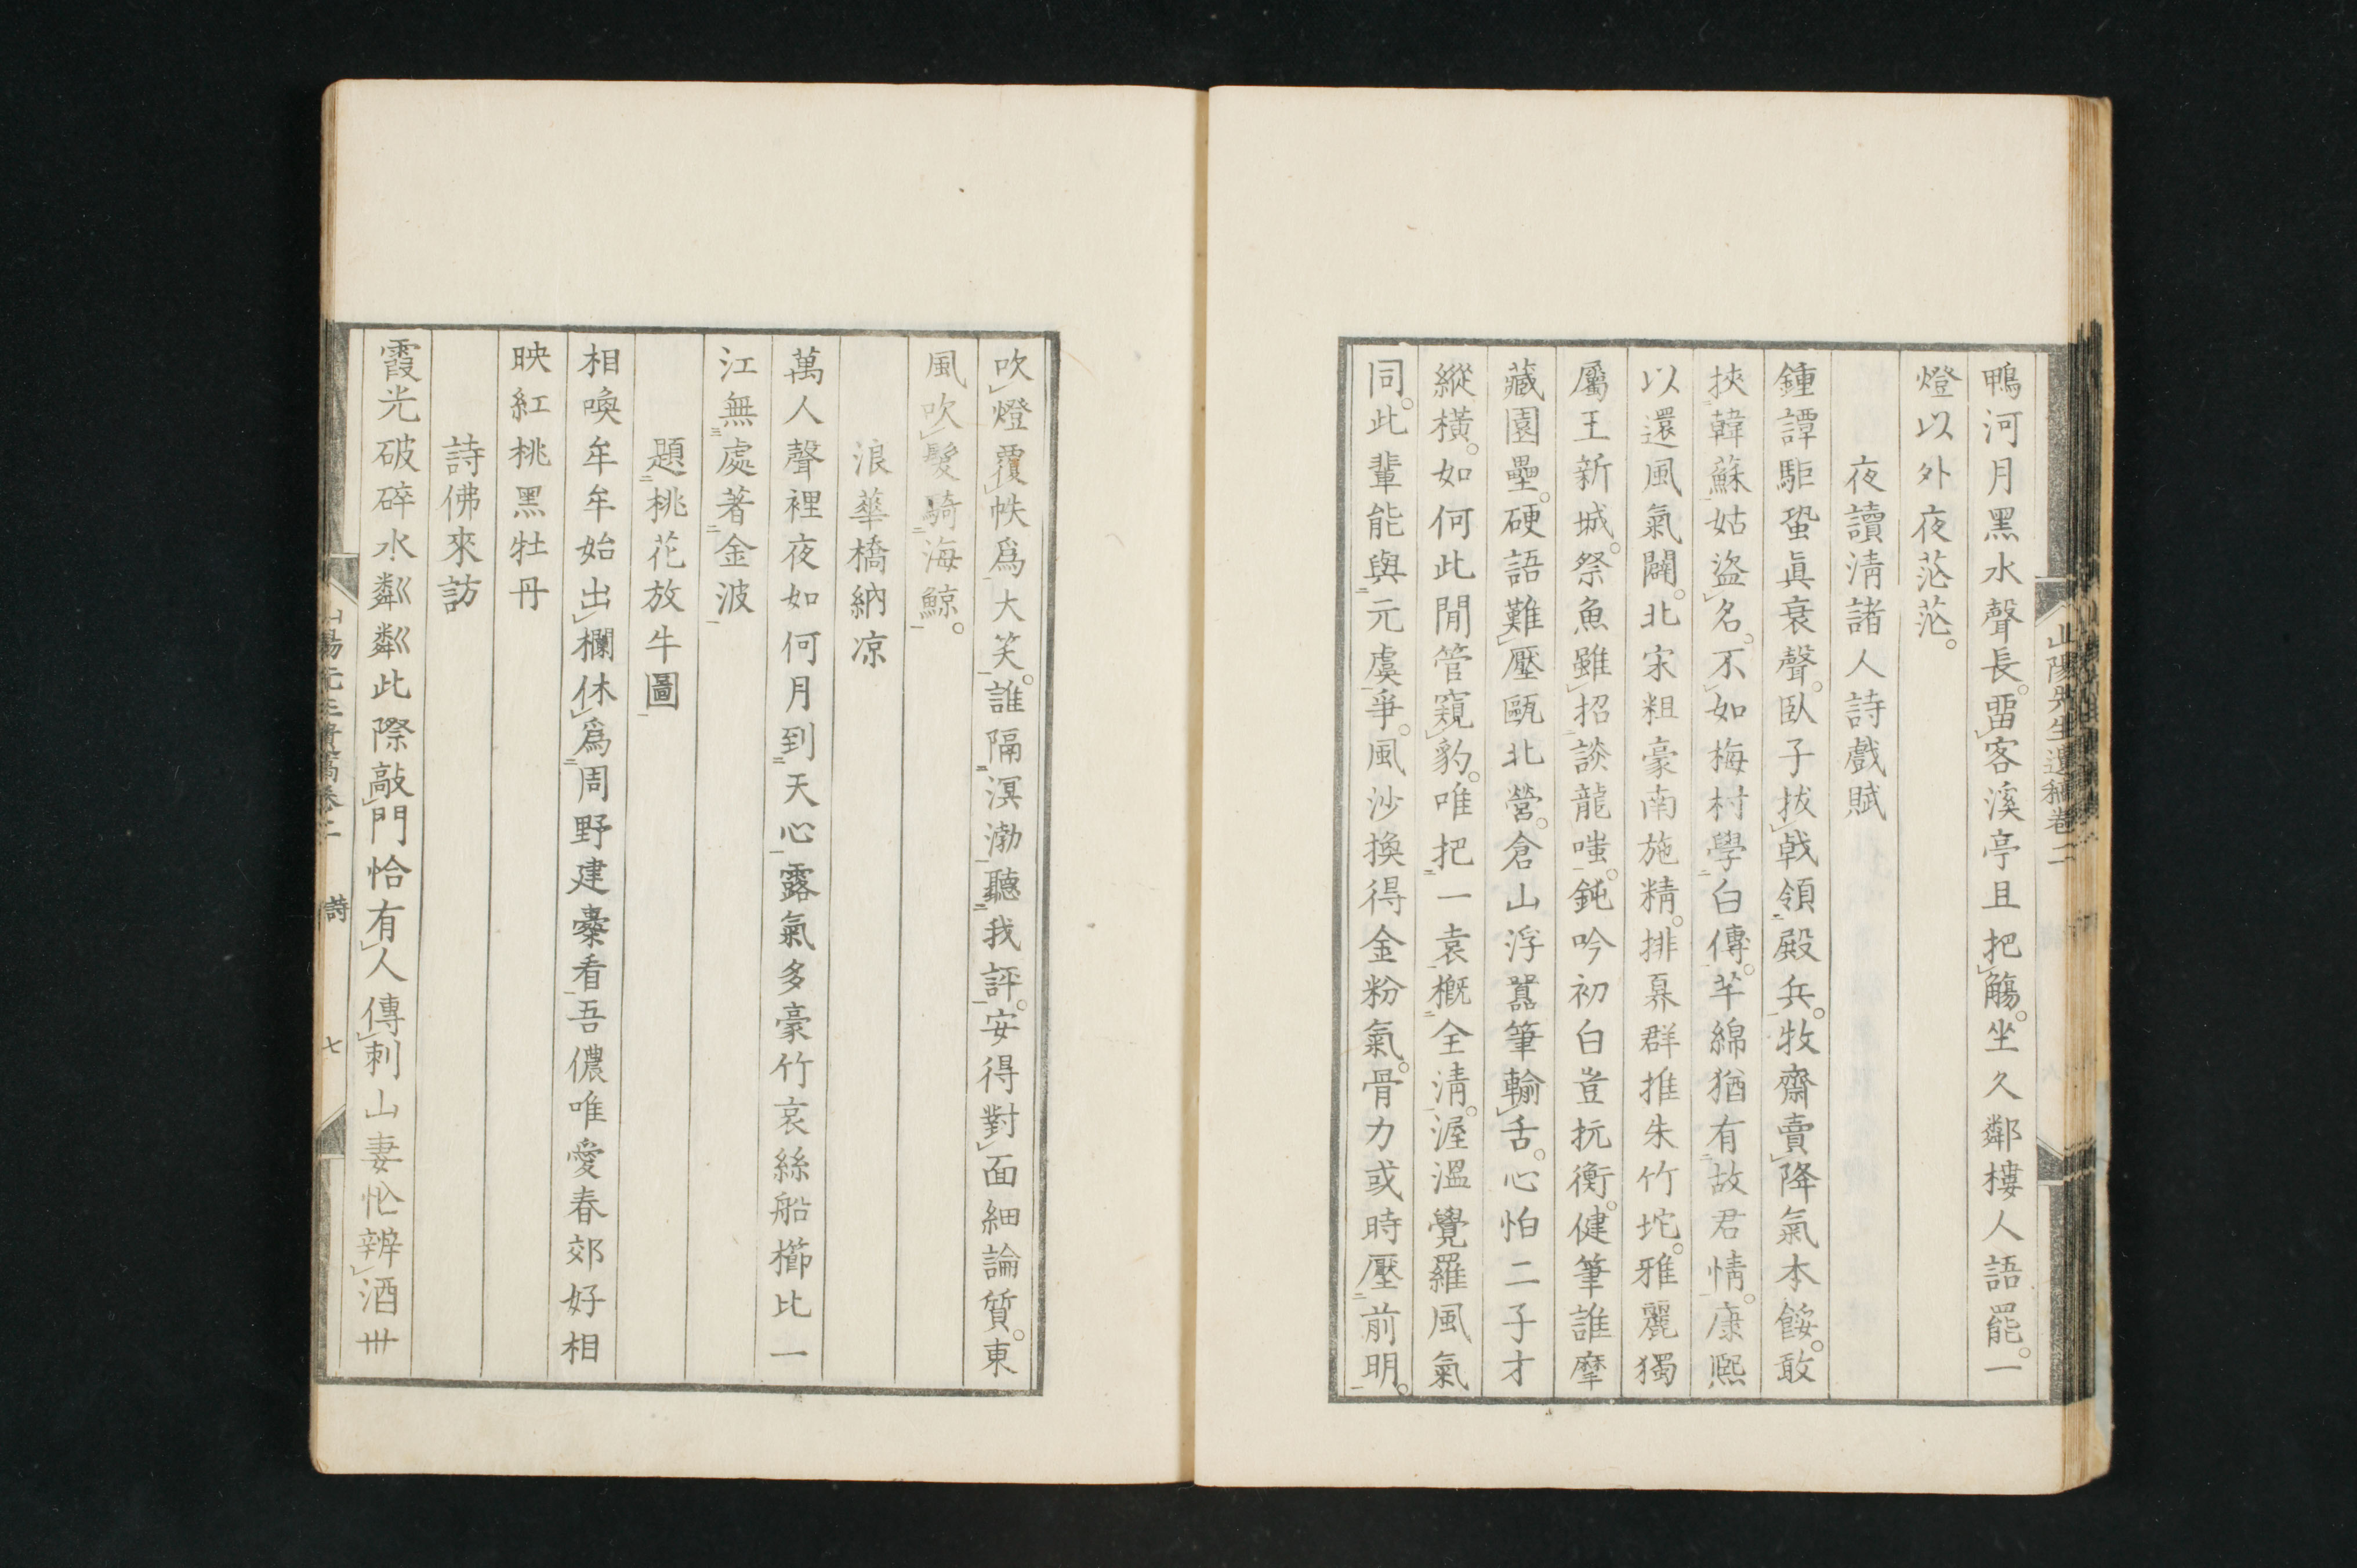 鴨河月黑水聲長。畱客溪亭且把觴。坐久鄰樓人語罷。一
燈以外夜茫茫。
夜讀淸諸人詩戲賦
鍾譚駏蛩眞衰聲。臥子拔戟領殿兵。牧齋賣降氣本餒。敢
挾韓蘇姑盜名。不如梅村學白傅。芊綿猶有故君情。康熙
以還風氣闢。北宋粗豪南施精。排奡群推朱竹坨。雅麗獨
屬王新城。祭魚雖招談龍嗤。鈍吟初白豈抗衡。健筆誰摩
藏園壘。硬語難壓甌北營。倉山浮囂筆輸舌。心怕二子才
縱橫。如何此閒管窺豹。唯把一袁概全淸。渥溫覺羅風氣
同。此輩能與元虞爭。風沙換得金粉氣。骨力或時壓前明。
山陽先生遺稿卷二
吹燈覆帙爲大笑。誰隔溟渤聽我評。安得對面細論質。東
風吹髮騎海鯨。
浪華橋納凉
萬人聲裡夜如何月到天心露氣多豪竹哀絲船櫛比一
江無處著金波
題桃花放牛圖
相喚牟牟始出欄休爲周野建櫜看吾儂唯愛春郊好相
映紅桃黑牡丹
詩佛來訪
霞光破碎水粼粼此際敲門恰有人傳刺山妻忙辨酒卅
詩 七